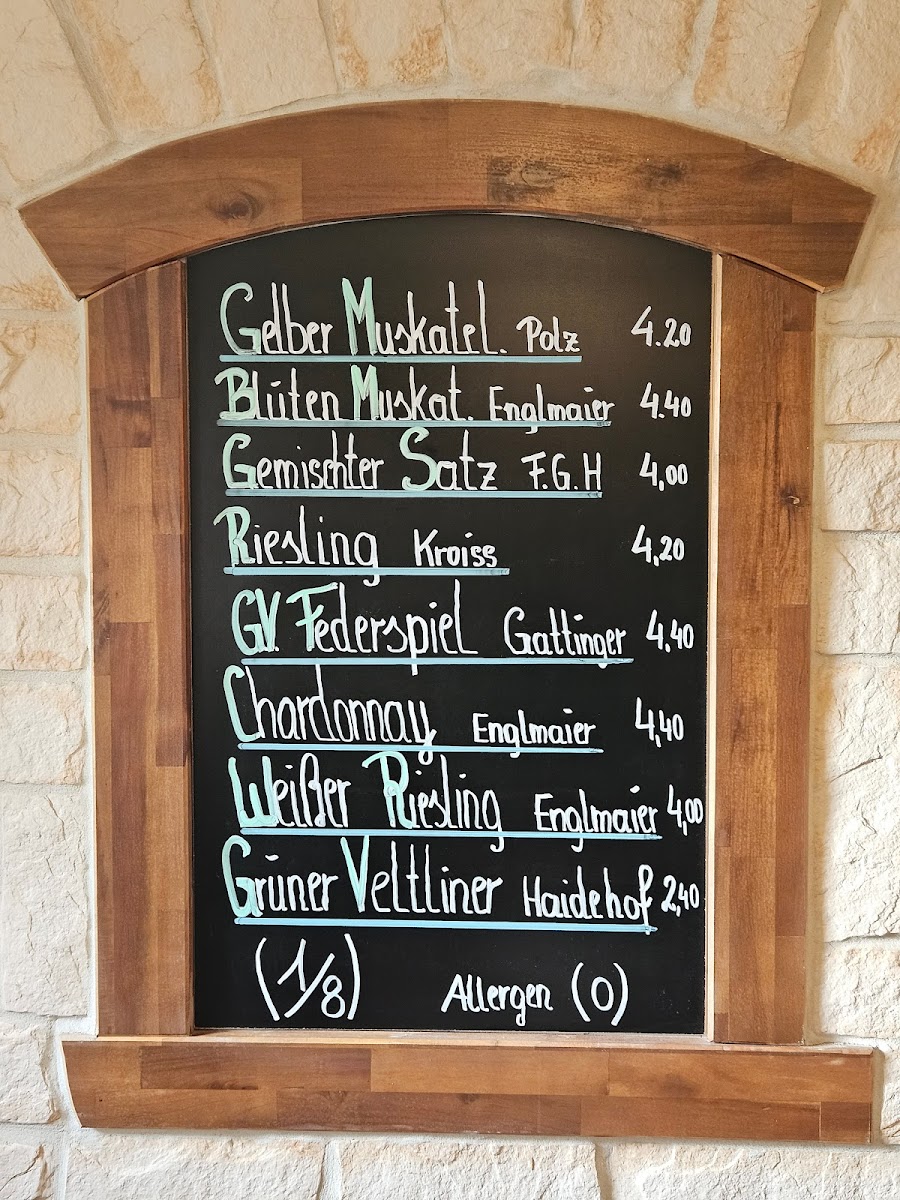 Gelber Muskatel. Polz 4.20
Blüten Muskat. Englmaier 4.40
Gemischter Satz F.G.H 4,00
Riesling Kroiss 4,20
GV. Federspiel Gattinger 4,40
Chardonnay Englmaier 4,40
Weißer Riesling Englmaier 4,00
Grüner Veltliner Haidehof 2,40
(1/8) Allergen (O)